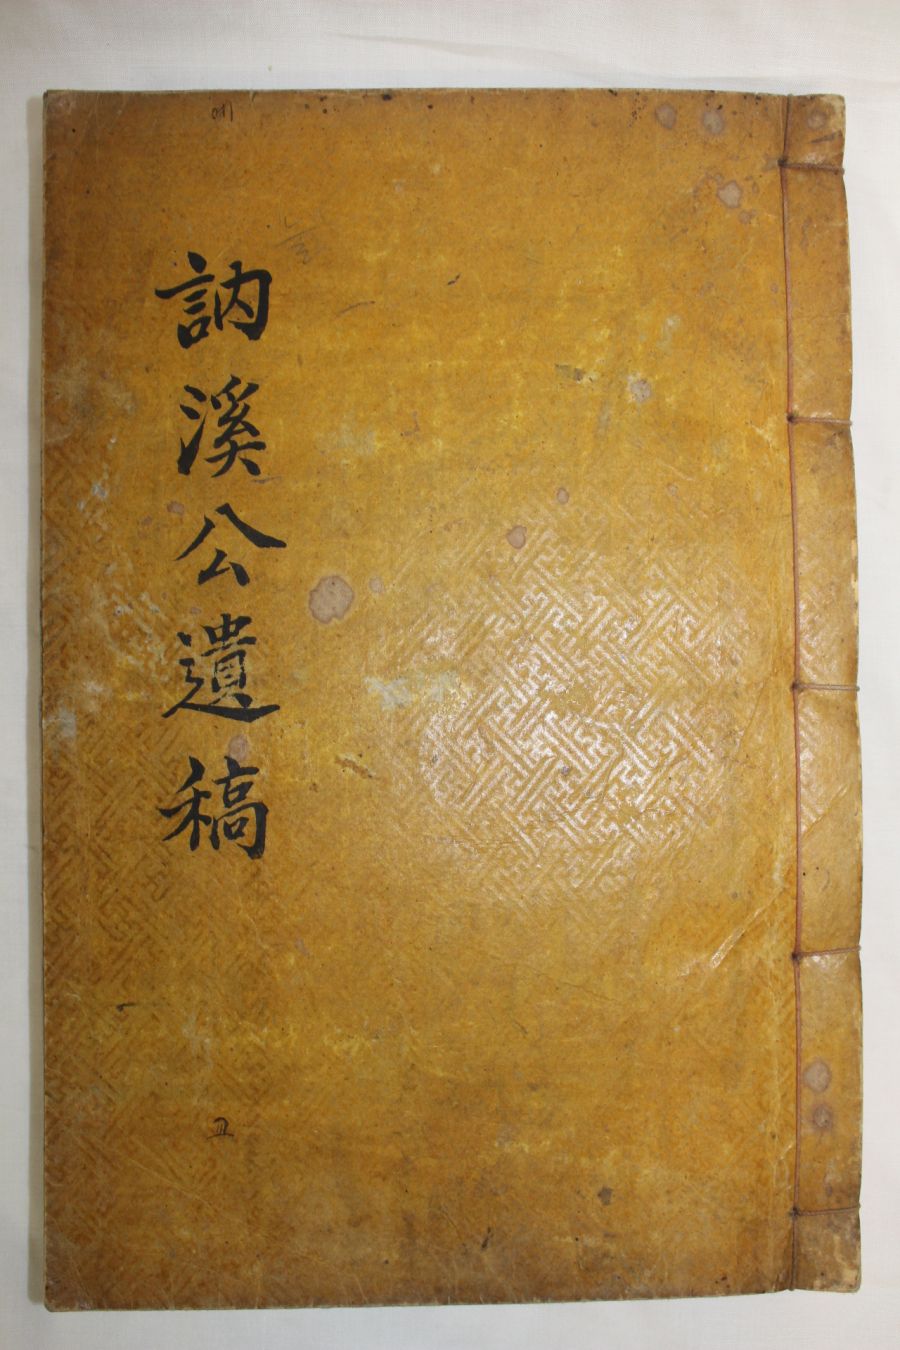 訥溪公遺稿